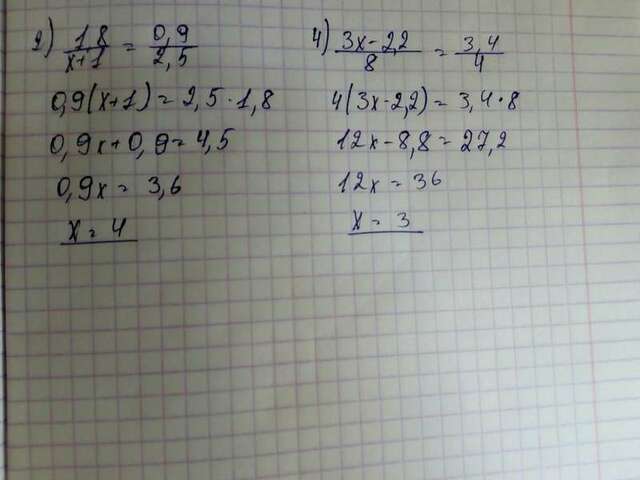 2) 1,8/(x+1) = 0,9/2,5
0,9(x+1) = 2,5·1,8
0,9x+0,9=4,5
0,9x = 3,6
x = 4
4) (3x-2,2)/8 = 3,4/4
4(3x-2,2)= 3,4·8
12x-8,8=27,2
12x = 36
x = 3